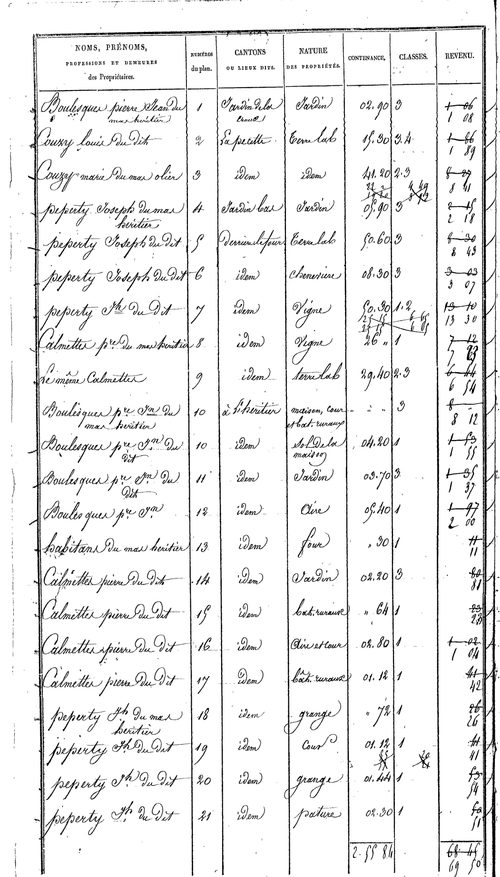 NOMS, PRÉNOMS, PROFESSIONS ET DEMEURES des Propriétaires. | NUMÉROS du plan. | CANTONS OU LIEUX DITS. | NATURE DES PROPRIÉTÉS. | CONTENANCE. | CLASSES. | REVENU.
Boulesques pierre Jean du mas heritier 1 Jardin de la Jardin 02.90 3 1 06 1 08
Couzy louis du dit 2 La pecette Terre lab 15.30 3.4 1 86 1 89
Couzy marie du mas olier 3 idem idem 41.20 2.3 8 27 8 41
peperty Joseph du mas heritier 4 Jardin bas Jardin 05.90 3 2 15 2 18
peperty Joseph du dit 5 Derriere le four Terre lab 50.60 3 8 30 8 43
peperty Joseph du dit 6 idem cheneviere 08.30 3 3 03 3 07
peperty Jh du dit 7 idem Vigne 50.30 1.2 13 10 13 30
Calmettes pre du mas heritier 8 idem Vigne 26 " 1 7 12
Le même Calmettes 9 idem terre lab 29.40 2.3 6 44 6 54
Boulesques pre Jn du mas heritier 10 à l'heritier maison, cour et bat. ruraux " " 3 8 " 8 12
Boulesques pre Jn du dit 10 idem sol de la maison 04.20 1 1 53 1 55
Boulesques pre Jn du dit 11 idem Jardin 03.70 3 1 35 1 37
Boulesques pre Jn 12 idem Aire 05.40 1 1 97 2 00
habitans du mas heritier 13 idem four " 30 1 11 11
Calmettes pierre du dit 14 idem Jardin 02.20 3 80 81
Calmettes pierre du dit 15 idem bat. ruraux " 64 1 23 23
Calmettes pierre du dit 16 idem Aire et cour 02.80 1 1 02 1 04
Calmettes pierre du dit 17 idem bât. ruraux 01.12 1 41 42
peperty Jh du mas heritier 18 idem grange " 72 1 26 26
peperty Jh du dit 19 idem Cour 01.12 1 41 41
peperty Jh du dit 20 idem grange 01.44 1 53 54
peperty Jh du dit 21 idem pature 02.30 1 50 51
2.55 84 68 45 69 50